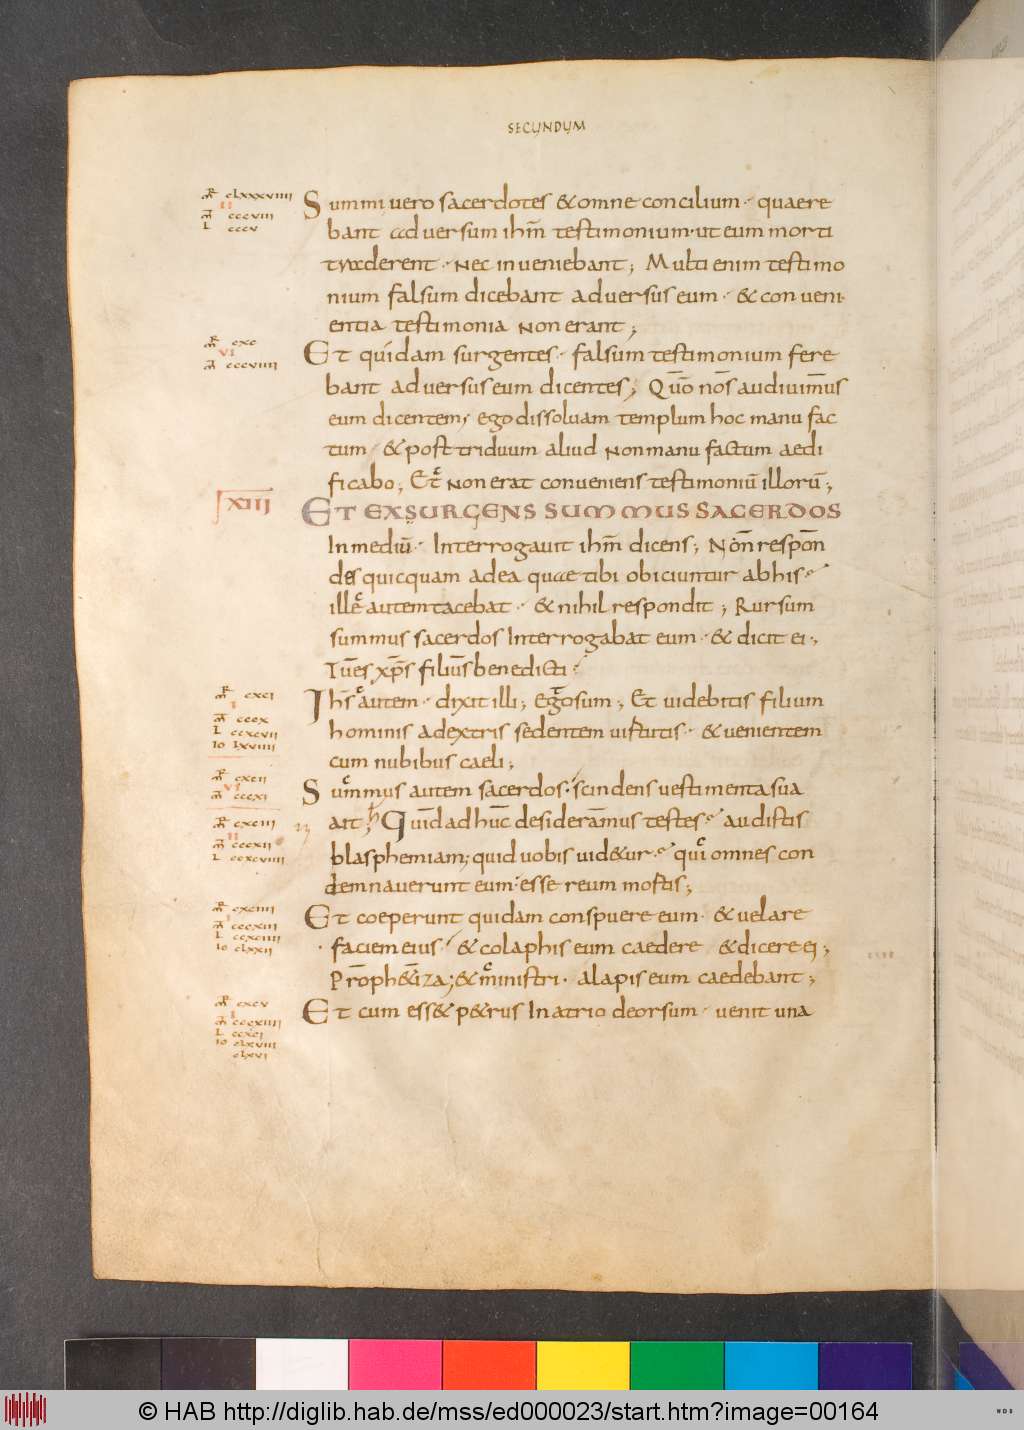 SECUNDUM
mr clxxxviiii
II
mt cccviii
L cccv
Summi vero sacerdotes & omne concilium · quaere
bant adversum ihm̄ testimonium · ut eum morti
traderent · Nec inveniebant; Multi enim testimo
nium falsum dicebant adversus eum · & conveni
entia testimonia non erant;
mr cxc
VI
mt cccviiii
Et quidam surgentes · falsum testimonium fere
bant adversus eum dicentes; Qūo nōs audivim̄us
eum dicentem; ego dissolvam templum hoc manu fac
tum · & post triduum aliud non manu factum aedi
ficabo; Et non erat conveniens testimoniū illorū;
XIII
ET EXSURGENS SUMMUS SACERDOS
In mediū · Interrogavit ihm̄ dicens; Non respon
des quicquam ad ea quae tibi obiciuntur ab his ·
ille autem tacebat · & nihil respondit; Rursum
summus sacerdos Interrogabat eum · & dicit ei;
Tu es xp̄s filius benedicti
mr cxci
I
mt cccx
L ccxcvii
Io lxviiii
Ihs̄ autem · dixit illi; ego sum; Et videbitis filium
hominis a dextris sedentem virtutis · & venientem
cum nubibus caeli;
mr cxcii
VI
mt cccxi
Summus autem sacerdos · scindens vestimenta sua
mr cxciii
II
mt cccxii
L ccxcviiii
ait; Quid adhuc desideramus testes · audistis
blasphemiam; quid vobis vid&ur · qui omnes con
demnaverunt eum · esse reum mortis;
mr cxciiii
I
mt cccxiii
L ccxciiii
Io clxxii
Et coeperunt quidam conspuere eum · & velare
faciem eius · & colaphis eum caedere & dicere ei;
Proph&iza; & ministri · alapis eum caedebant;
mr cxcv
I
mt cccxiiii
L ccxci
Io clxviii
clxvi
Et cum ess& p&rus In atrio deorsum · venit una
© HAB http://diglib.hab.de/mss/ed000023/start.htm?image=00164